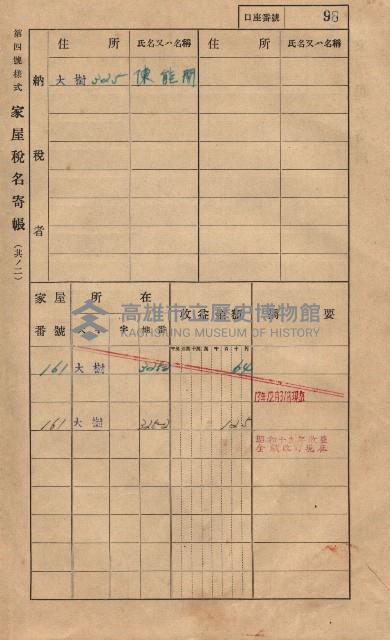 口座番號 98
第四號樣式 家屋稅名寄帳(其ノ二)
納稅者
住所 氏名又ハ名稱 住所 氏名又ハ名稱
大樹 325
家屋番號 所在 收益金額 摘要
字 地番
高雄市立歷史博物館
KAOHSIUNG MUSEUM OF HISTORY
161 大樹 64
13年12月31日現在
161 大樹 325-2 125
昭和十九年收益
金額改訂現在